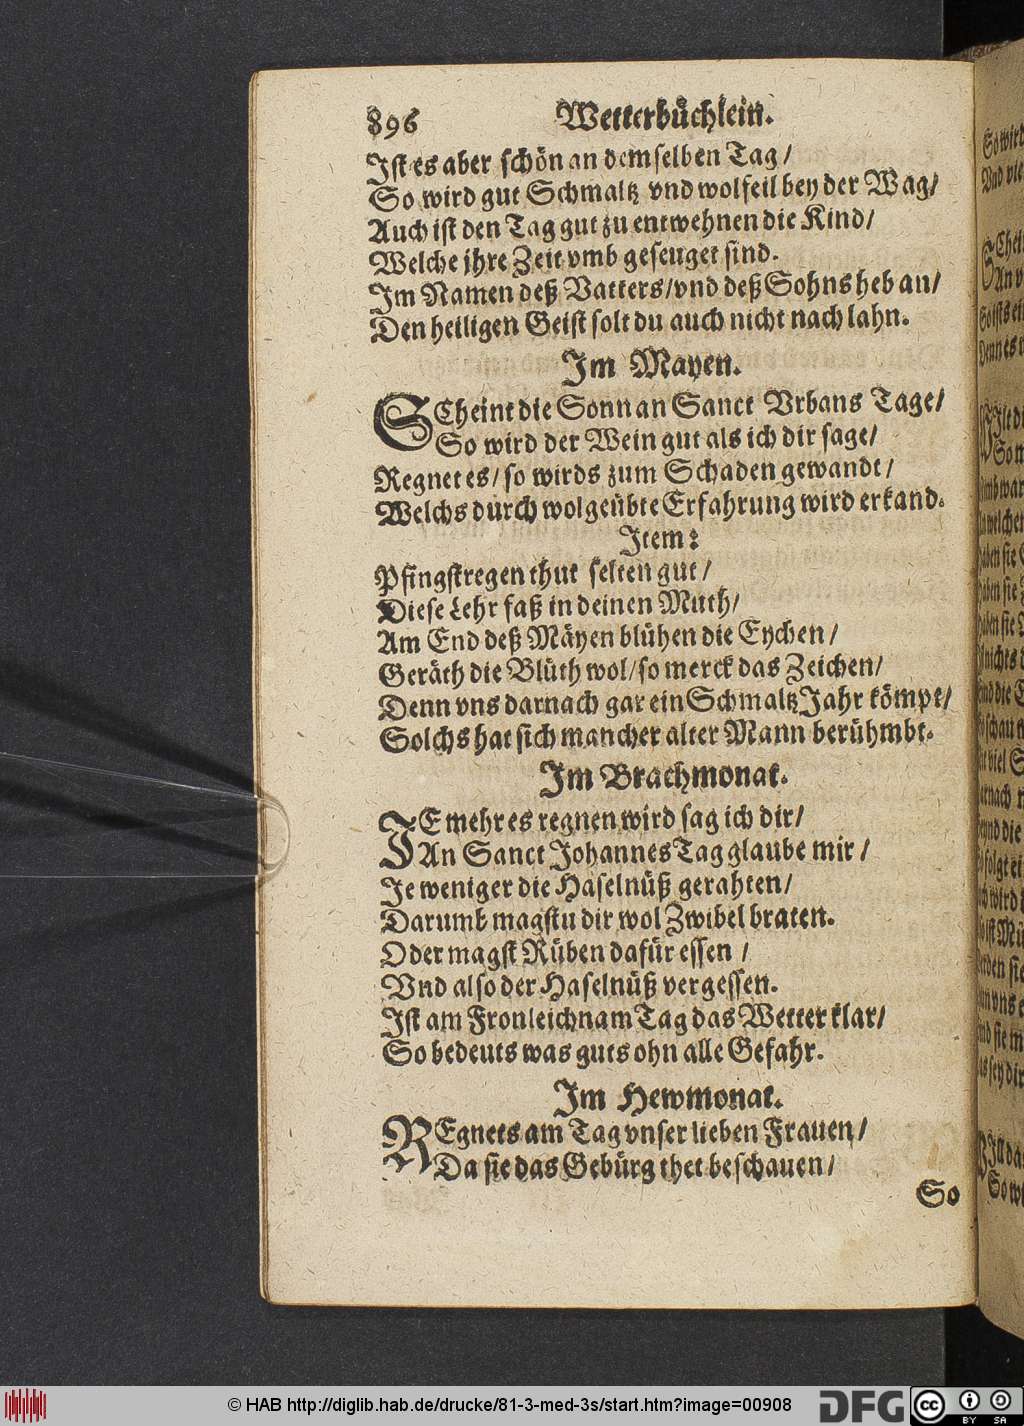 896 Wetterbüchlein.
Ist es aber schön an demselben Tag /
So wird gut Schmaltz vnd wolfeil bey der Wag/
Auch ist den Tag gut zu entwehnen die Kind/
Welche jhre Zeit vmb geseuget sind.
Im Namen deß Vatters/vnd deß Sohns heb an/
Den heiligen Geist solt du auch nicht nach lahn.
Im Mayen.
SCheint die Sonn an Sanct Vrbans Tage/
So wird der Wein gut als ich dir sage/
Regnet es/ so wirds zum Schaden gewandt/
Welchs durch wolgeübte Erfahrung wird erkand.
Item:
Pfingstregen thut selten gut/
Diese Lehr faß in deinen Muth/
Am End deß Mäyen blühen die Eychen/
Geräth die Blüth wol/so merck das Zeichen/
Denn vns darnach gar ein Schmaltz Jahr kömpt/
Solchs hat sich mancher alter Mann berühmbt.
Im Brachmonat.
IE mehr es regnen wird sag ich dir/
An Sanct Johannes Tag glaube mir /
Je weniger die Haselnüß gerahten/
Darumb magstu dir wol Zwibel braten.
Oder magst Rüben dafür essen /
Vnd also der Haselnüß vergessen.
Ist am Fronleichnam Tag das Wetter klar/
So bedeuts was guts ohn alle Gefahr.
Im Hewmonat.
REgnets am Tag vnser lieben Frauen/
Da sie das Gebürg thet beschauen/
So
© HAB http://diglib.hab.de/drucke/81-3-med-3s/start.htm?image=00908
DFG
cc BY SA